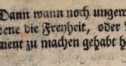 Dann wann noch ungere
ene die Freyheit, oder
ment zu machen gehabt h